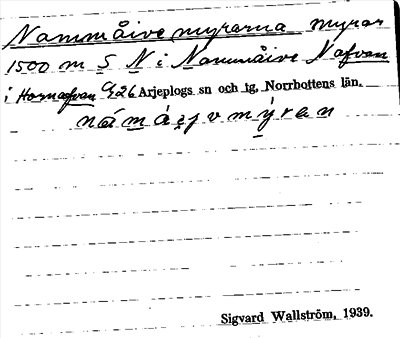 Nammåivemyrarna myrar
1500 m S N i Nammåive Nafvan
i Hornafvan C, 26 Arjeplogs sn och tg, Norrbottens län.
námáejvmýran
Sigvard Wallström, 1939.